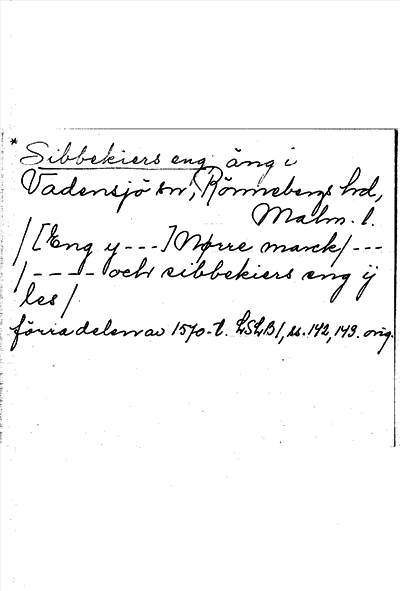 * Sibbekiers eng äng i
Vadensjö sn, Rönnebergs hd,
Malm. l.
/[Eng y---] Nørre marck/---
/---- och sibbekiers eng ij
les/
förra delen av 1570-t. LSLB1, s. 142, 143. orig.